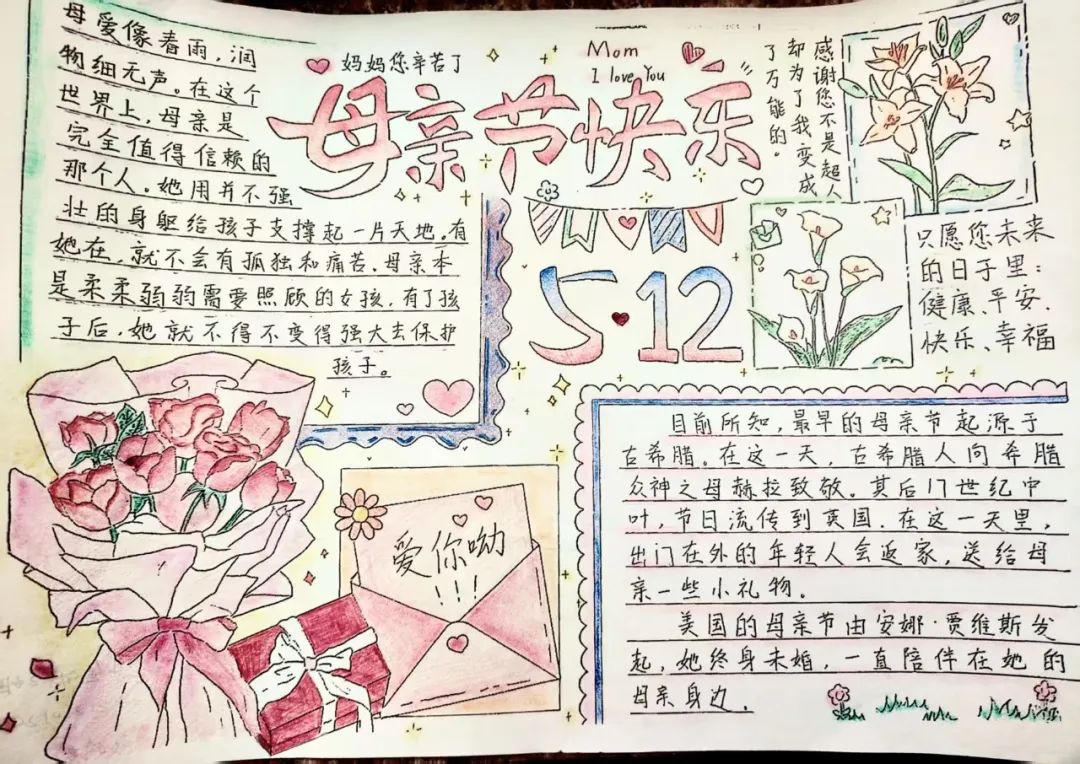 母爱像春雨，润
物细无声。在这个
世界上，母亲是
完全值得信赖的
那个人。她用并不强
壮的身躯给孩子支撑起一片天地。有
她在，就不会有孤独和痛苦。母亲本
是柔柔弱弱需要照顾的女孩，有了孩
子后，她就不得不变得强大去保护
孩子。
妈妈您辛苦了
Mom
I love You
母亲节快乐
5·12
感谢您不是超人
却为了我变成
了万能的。
只愿您未来
的日子里：
健康、平安、
快乐、幸福
爱你呦
!!!
目前所知，最早的母亲节起源于
古希腊。在这一天，古希腊人向希腊
众神之母赫拉致敬。其后17世纪中
叶，节日流传到英国。在这一天里，
出门在外的年轻人会返家，送给母
亲一些小礼物。
美国的母亲节由安娜·贾维斯发
起，她终身未婚，一直陪伴在她的
母亲身边。